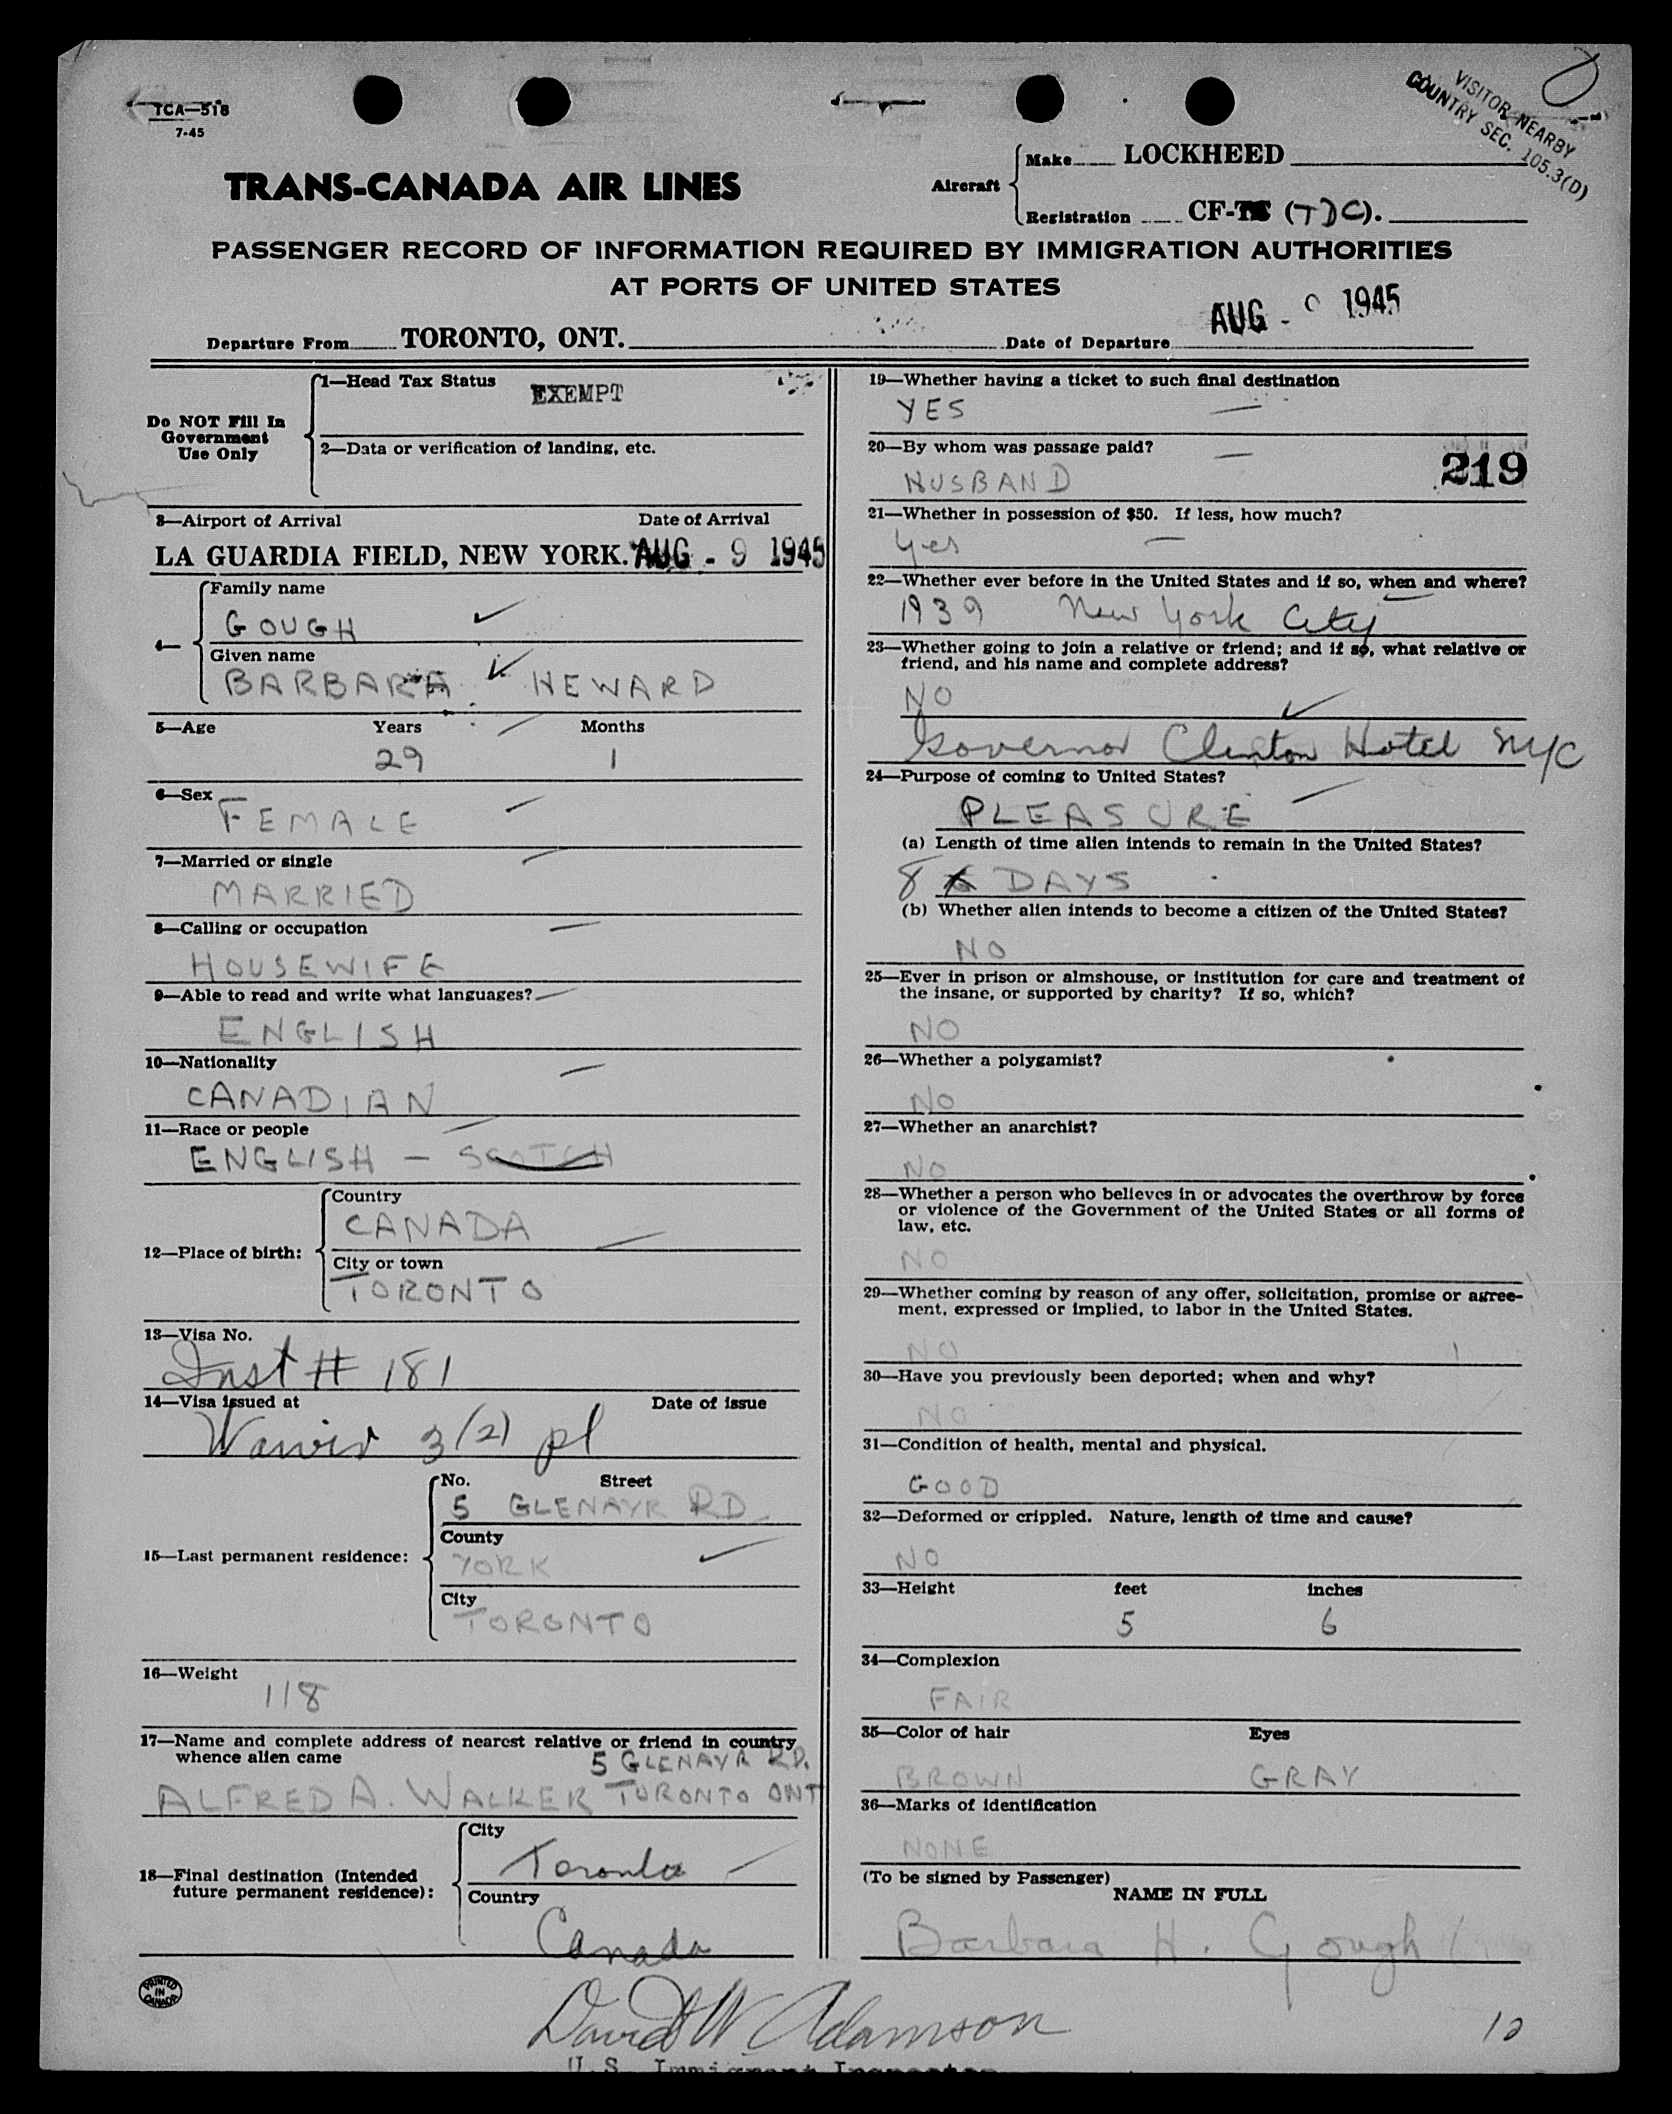 TCA—518
7-45
VISITOR NEARBY
COUNTRY SEC. 105.3(D)
TRANS-CANADA AIR LINES
Aircraft
Make LOCKHEED
Registration CF- (TDC).
PASSENGER RECORD OF INFORMATION REQUIRED BY IMMIGRATION AUTHORITIES
AT PORTS OF UNITED STATES
Departure From TORONTO, ONT.
Date of Departure AUG - 9 1945
Do NOT Fill In
Government
Use Only
1—Head Tax Status EXEMPT
2—Data or verification of landing, etc.
3—Airport of Arrival Date of Arrival
LA GUARDIA FIELD, NEW YORK. AUG - 9 1945
4—
Family name
GOUGH
Given name
BARBARA HEWARD
5—Age Years Months
29 1
6—Sex
FEMALE
7—Married or single
MARRIED
8—Calling or occupation
HOUSEWIFE
9—Able to read and write what languages?
ENGLISH
10—Nationality
CANADIAN
11—Race or people
ENGLISH — SCOTCH
12—Place of birth:
Country
CANADA
City or town
TORONTO
13—Visa No.
Inst # 181
14—Visa issued at Date of issue
Waiver 3(2) pl
15—Last permanent residence:
No. Street
5 GLENAYR RD
County
YORK
City
TORONTO
16—Weight
118
17—Name and complete address of nearest relative or friend in country
whence alien came
5 GLENAYR RD.
ALFRED A. WALKER TORONTO ONT
18—Final destination (Intended
future permanent residence):
City
Toronto
Country
Canada
19—Whether having a ticket to such final destination
YES
20—By whom was passage paid?
HUSBAND
219
21—Whether in possession of $50. If less, how much?
Yes
22—Whether ever before in the United States and if so, when and where?
1939 New York City
23—Whether going to join a relative or friend; and if so, what relative or
friend, and his name and complete address?
NO
Governor Clinton Hotel NYC
24—Purpose of coming to United States?
PLEASURE
(a) Length of time alien intends to remain in the United States?
8 DAYS
(b) Whether alien intends to become a citizen of the United States?
NO
25—Ever in prison or almshouse, or institution for care and treatment of
the insane, or supported by charity? If so, which?
NO
26—Whether a polygamist?
NO
27—Whether an anarchist?
NO
28—Whether a person who believes in or advocates the overthrow by force
or violence of the Government of the United States or all forms of
law, etc.
NO
29—Whether coming by reason of any offer, solicitation, promise or agree-
ment, expressed or implied, to labor in the United States.
NO
30—Have you previously been deported; when and why?
NO
31—Condition of health, mental and physical.
GOOD
32—Deformed or crippled. Nature, length of time and cause?
NO
33—Height feet inches
5 6
34—Complexion
FAIR
35—Color of hair Eyes
BROWN GRAY
36—Marks of identification
NONE
(To be signed by Passenger)
NAME IN FULL
Barbara H. Gough
PRINTED
IN
CANADA
David W. Adamson
10
U.S. Immigrant Inspector